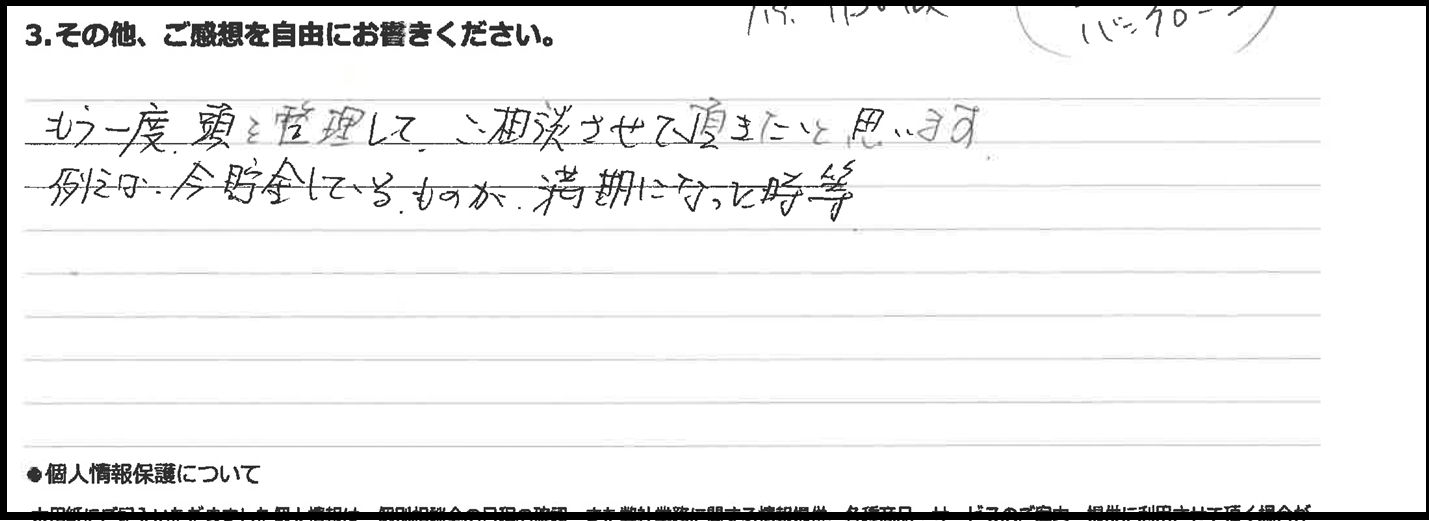 バックローン
3.その他、ご感想を自由にお書きください。
もう一度、頭を整理して、ご相談させて頂きたいと思います。
例えば、今貯金している、ものが、満期になった時等
●個人情報保護について